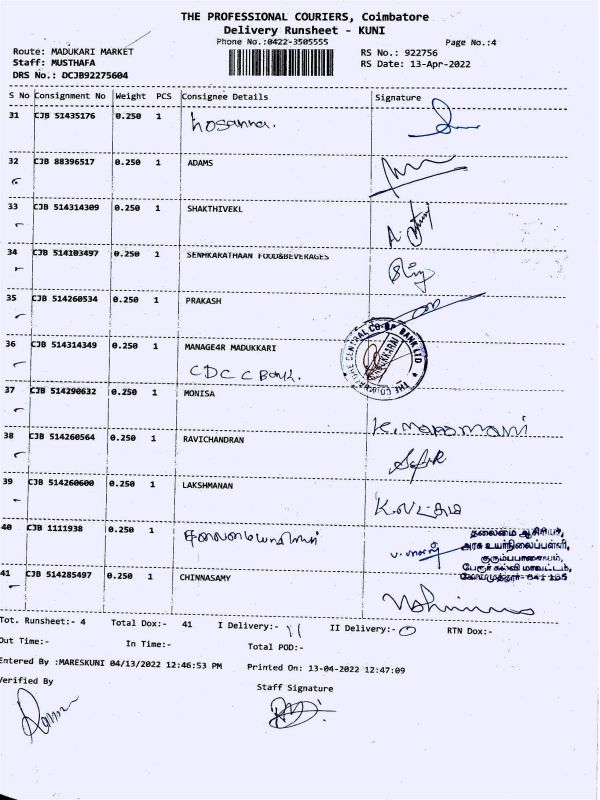 THE PROFESSIONAL COURIERS, Coimbatore
Delivery Runsheet - KUNI
Phone No.:0422-3505555 Page No.:4
Route: MADUKARI MARKET RS No.: 922756
Staff: MUSTHAFA RS Date: 13-Apr-2022
DRS No.: DCJB92275604
S No Consignment No Weight PCS Consignee Details Signature
31 CJB 51435176 0.250 1 hosanna.
32 CJB 88396517 0.250 1 ADAMS
33 CJB 514314309 0.250 1 SHAKTHIVEKL
34 CJB 514103497 0.250 1 SENHKARATHAAN FOOD&BEVERAGES
35 CJB 514260534 0.250 1 PRAKASH
36 CJB 514314349 0.250 1 MANAGE4R MADUKKARI
CDCC Bank.
37 CJB 514290632 0.250 1 MONISA
K. manomani
38 CJB 514260564 0.250 1 RAVICHANDRAN
39 CJB 514260600 0.250 1 LAKSHMANAN
40 CJB 1111938 0.250 1
தலைமை ஆசிரியர்,
அரசு உயர்நிலைப்பள்ளி,
குரும்பபாளையம்,
பேரூர் கல்வி மாவட்டம்,
கோயமுத்தூர்- 641 105
41 CJB 514285497 0.250 1 CHINNASAMY
Tot. Runsheet:- 4 Total Dox:- 41 I Delivery:- 11 II Delivery:- 0 RTN Dox:-
Out Time:- In Time:- Total POD:-
Entered By :MARESKUNI 04/13/2022 12:46:53 PM Printed On: 13-04-2022 12:47:09
Verified By Staff Signature